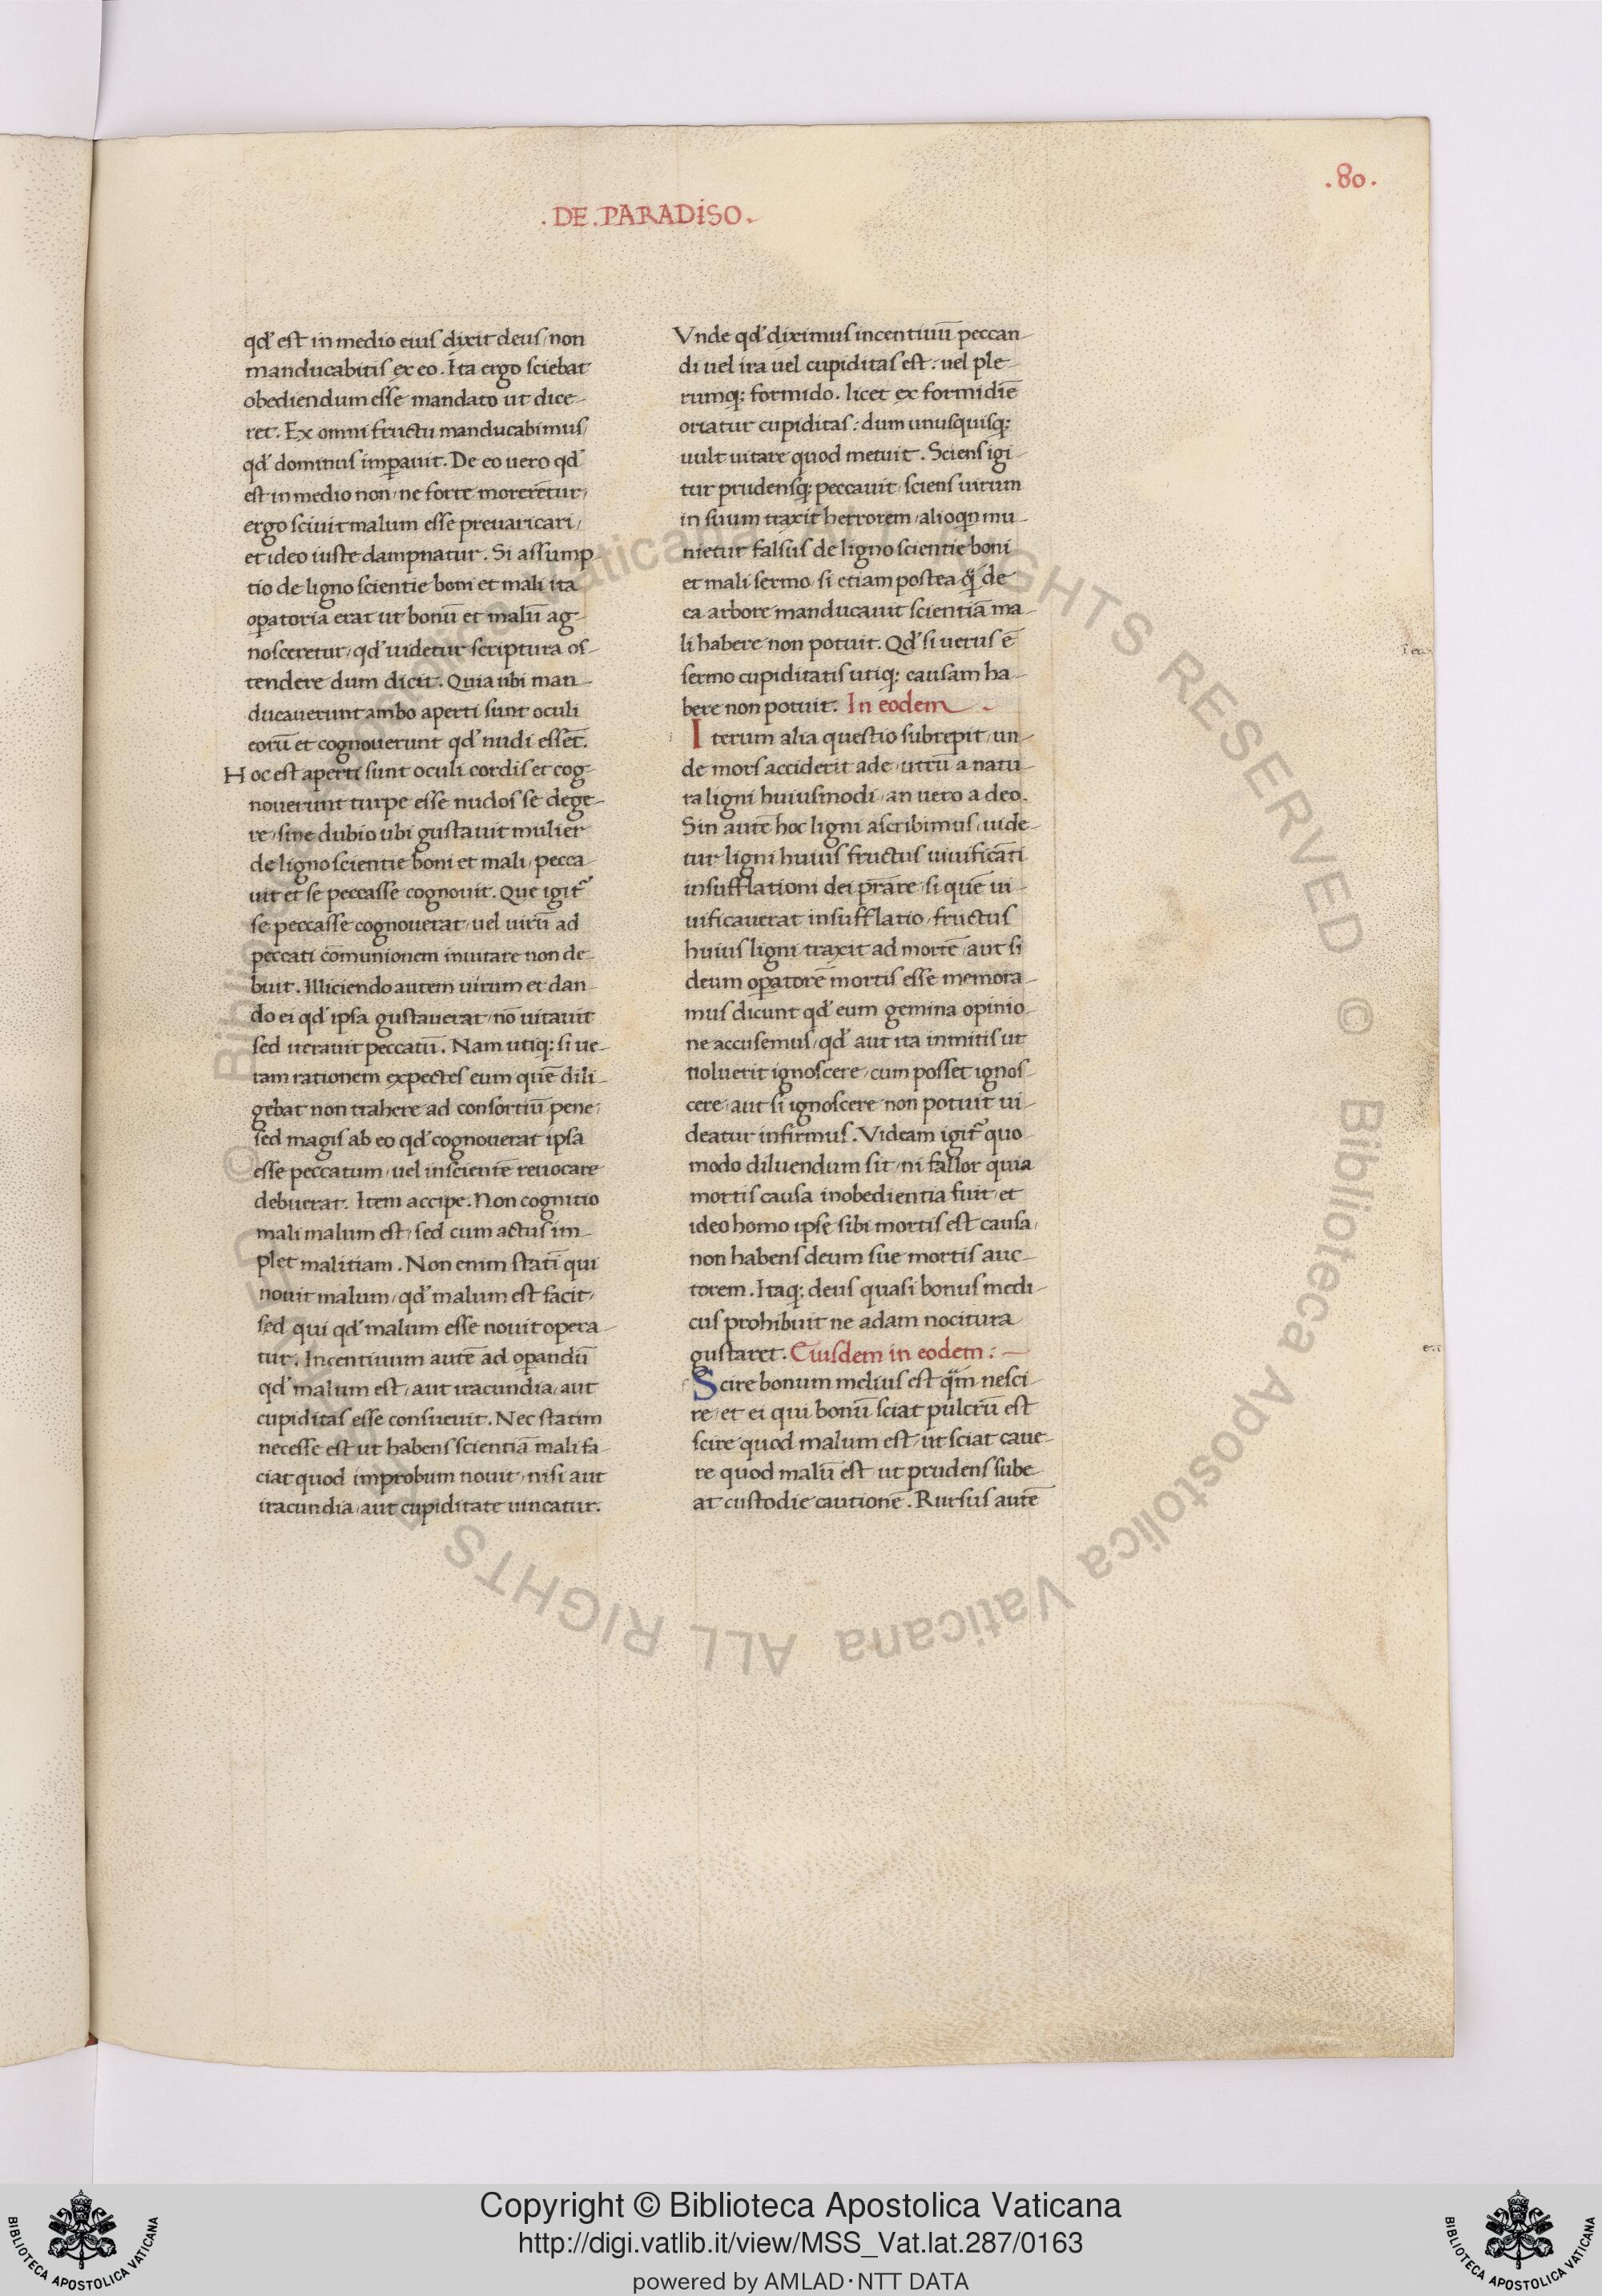 .80.
. DE . PARADISO .
qđ est in medio eius dixit deus / non
manducabitis ex eo . Ita ergo sciebat
obediendum esse mandato ut dice-
ret . Ex omni fructu manducabimus /
qđ dominus imꝑauit . De eo uero qđ
est in medio non / ne forte moreretur /
ergo sciuit malum esse preuaricari /
et ideo iuste dampnatur . Si assump-
tio de ligno scientie boni et mali ita
oꝑatoria erat ut bonū et malū ag-
nosceretur / qđ uidetur scriptura os-
tendere dum dicit . Quia ubi man-
ducauerunt ambo aperti sunt oculi
eorū et cognouerunt qđ nudi esset̄.
Hoc est aperti sunt oculi cordis et cog-
nouerunt turpe esse nudos se dege-
re / sine dubio ubi gustauit mulier
de ligno scientie boni et mali / pecca-
uit et se peccasse cognouit . Que igit᷑
se peccasse cognouerat / uel uirū ad
peccati cōmunionem inuitare non de-
buit . Illiciendo autem uirum et dan-
do ei qđ ipsa gustauerat / nō uitauit
sed uerauit peccatū . Nam utiq; si ue-
ram rationem expectes eum quē dili-
gebat non trahere ad consortiū pene /
sed magis ab eo qđ cognouerat ipsa
esse peccatum / uel inscientē reuocare
debuerat . Item accipe . Non cognitio
mali malum est / sed cum actus im-
plet malitiam . Non enim statī qui
nouit malum / qđ malum est facit /
sed qui qđ malum esse nouit opera-
tur . Incentiuum autē ad oꝑandū
qđ malum est / aut iracundia / aut
cupiditas esse consueuit . Nec statim
necesse est ut habens scientiā mali fa-
ciat quod improbum nouit / nisi aut
iracundia / aut cupiditate uincatur .
Vnde qđ diximus incentiuū peccan-
di uel ira uel cupiditas est : uel ple-
rumq; formido . licet ex formidīe
oriatur cupiditas : dum unusquisq;
uult uitare quod metuit . Sciens igi-
tur prudensq; peccauit / sciens uirum
in suum traxit herrorem / alioqn mu-
nietur falsus de ligno scientie boni
et mali sermo / si etiam postea q̈ de
ea arbore manducauit scientiā ma-
li habere non potuit . Qđ si uerus ē
sermo cupiditatis utiq; causam ha-
bere non potuit . In eodem .
Iterum alia questio subrepit / un-
de mors acciderit ade / utrū a natu-
ra ligni huiusmodi / an uero a deo .
Sin autē hoc ligni ascribimus / uide-
tur ligni huius fructus uiuificāti
insufflationi dei prāre / si quē ui-
uificauerat insufflatio / fructus
huius ligni traxit ad mortē / aut si
deum oꝑatorē mortis esse memora-
mus dicunt qđ eum gemina opinio-
ne accusemus / qđ aut ita inmitis ut
noluerit ignoscere / cum posset ignos-
cere / aut si ignoscere non potuit ui-
deatur infirmus . Videam igit᷑ quo-
modo diluendum sit / ni fallor quia
mortis causa inobedientia fuit / et
ideo homo ipse sibi mortis est causa /
non habens deum sue mortis auc-
torem . Itaq; deus quasi bonus medi-
cus prohibuit ne adam nocitura
gustaret . Eiusdem in eodem : —
Scire bonum melius est q̈m nesci-
re / et ei qui bonū sciat pulcrū est
scire quod malum est / ut sciat caue-
re quod malū est / ut prudens sube-
at custodie cautionē . Rursus autē
© Biblioteca Apostolica Vaticana ALL RIGHTS RESERVED
Copyright © Biblioteca Apostolica Vaticana
http://digi.vatlib.it/view/MSS_Vat.lat.287/0163
powered by AMLAD·NTT DATA
BIBLIOTECA APOSTOLICA VATICANA
BIBLIOTECA APOSTOLICA VATICANA